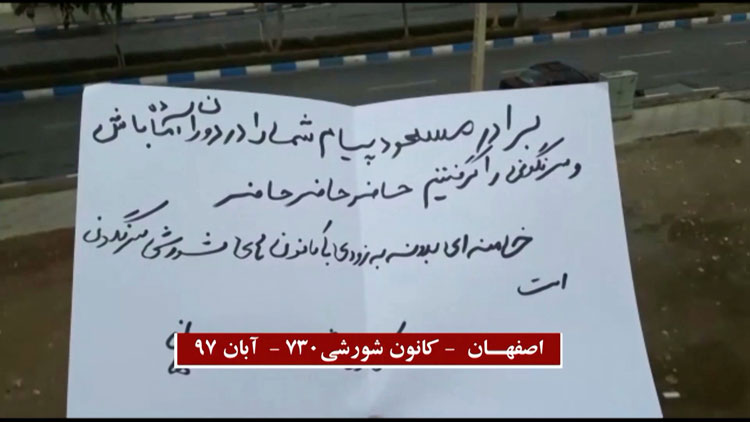 برادر مسعود پیام شما را در دوران آماده باش
و سرنگونی را گرفتیم حاضر حاضر حاضر
خامنه ای بدونه به زودی با کانون های شورشی سرنگونی
است
اصفهان - کانون شورشی ۷۳۰ - آبان ۹۷